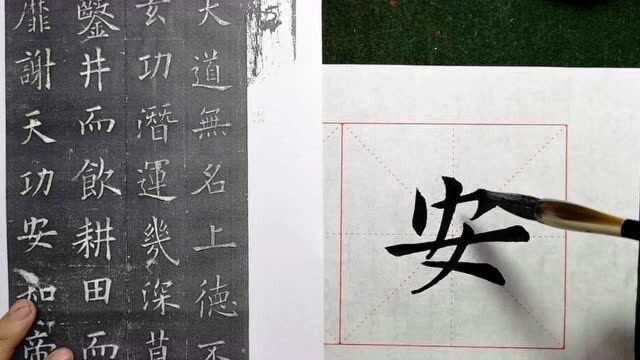 大道無名上德不
玄功潛運幾深莫
鑿井而飲耕田而
靡謝天功安知帝
安